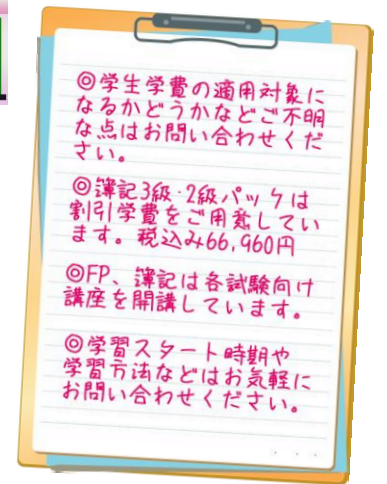 ◎学生学費の適用対象に
なるかどうかなどご不明
な点はお問い合わせくだ
さい。
◎簿記3級・2級パックは
割引学費をご用意してい
ます。税込み66,960円
◎FP、簿記は各試験向け
講座を開講しています。
◎学習スタート時期や
学習方法などはお気軽に
お問い合わせください。